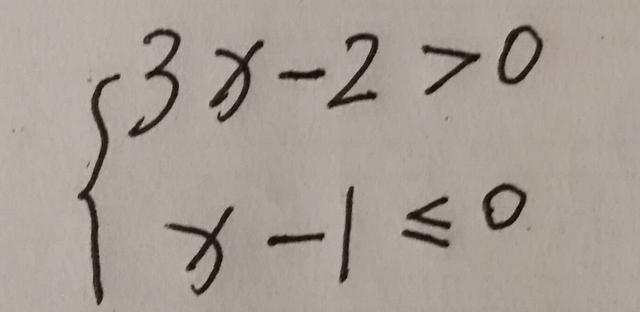 3x-2>0
x-1≤0